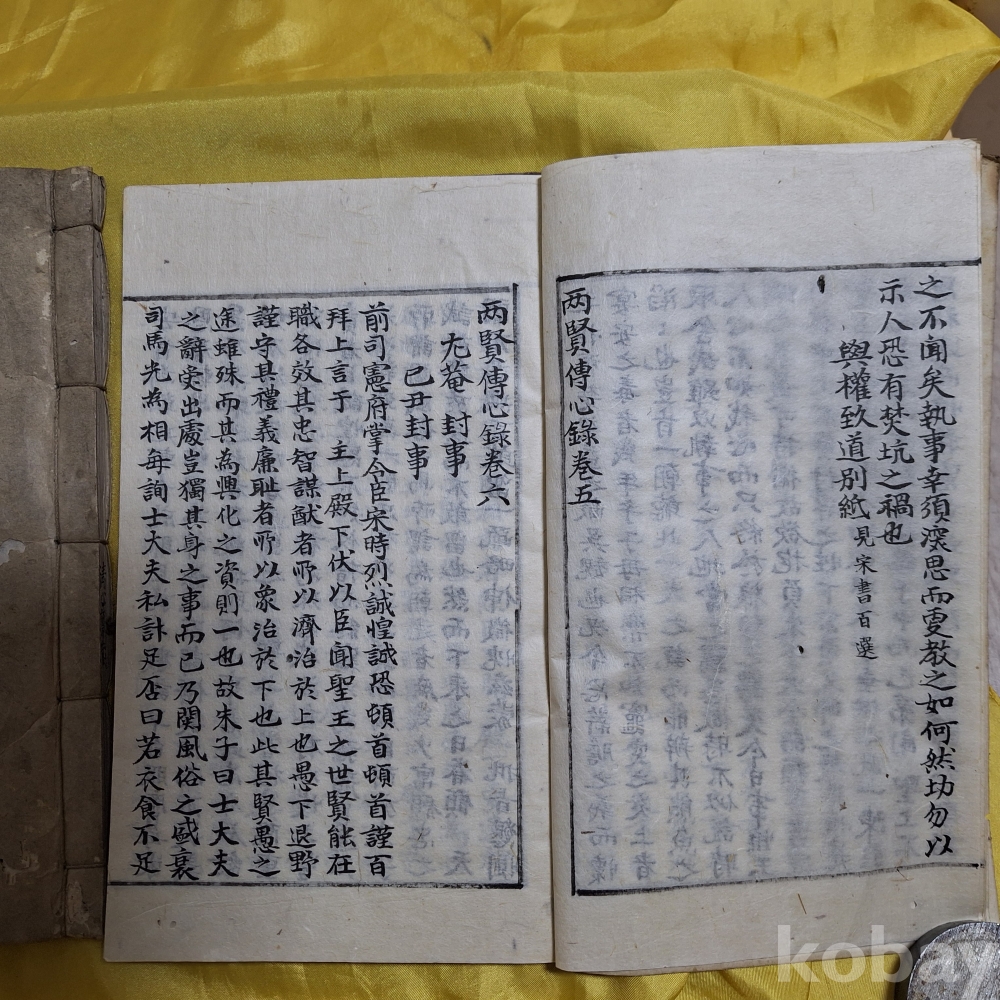 之不聞矣執事幸須深思而更教之如何然切勿以
示人恐有焚坑之禍也
與權致道別紙見宋書百選
两賢傳心錄卷五
两賢傳心錄卷六
尤菴封事
己丑封事
前司憲府掌令臣宋時烈誠惶誠恐頓首頓首謹百
拜上言于主上殿下伏以臣聞聖王之世賢能在
職各效其忠智謀猷者所以濟治於上也愚下退野
謹守其禮義廉耻者所以象治於下也此其賢愚之
途雖殊而其為興化之資則一也故朱子曰士大夫
之辭受出處豈獨其身之事而已乃関風俗之盛衰
司馬光為相每詢士大夫私計足否曰若衣食不足
kobay